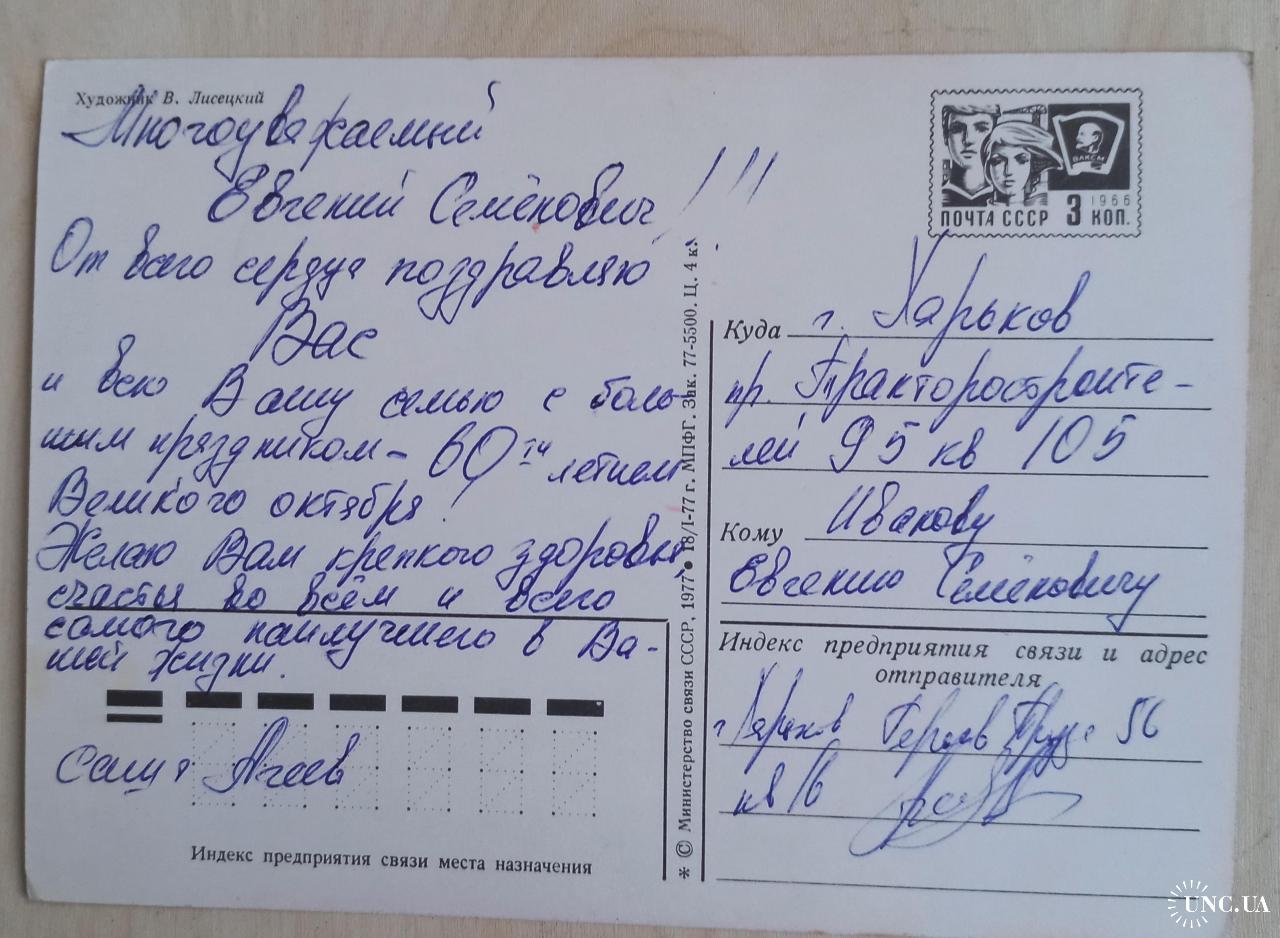 Художник В. Лисецкий
Многоуважаемый
Евгений Семёнович!!!
От всего сердца поздравляю
Вас
и всю Вашу семью с боль-
шим праздником – 60тилетием
Великого октября!
Желаю Вам крепкого здоровья,
счастья во всём и всего
самого наилучшего в Ва-
шей жизни.
Саша Агеев
Индекс предприятия связи места назначения
* © Министерство связи СССР, 1977 ● 18/I-77 г. МПФГ. Зак. 77-5500. Ц. 4 к.
ВЛКСМ
1966
ПОЧТА СССР 3 КОП.
Куда г. Харьков
пр. Тракторостроите-
лей 95 кв 105
Кому Иванову
Евгению Семёновичу
Индекс предприятия связи и адрес
отправителя
г Харьков Героев Труда 56
кв 16
UNC.UA